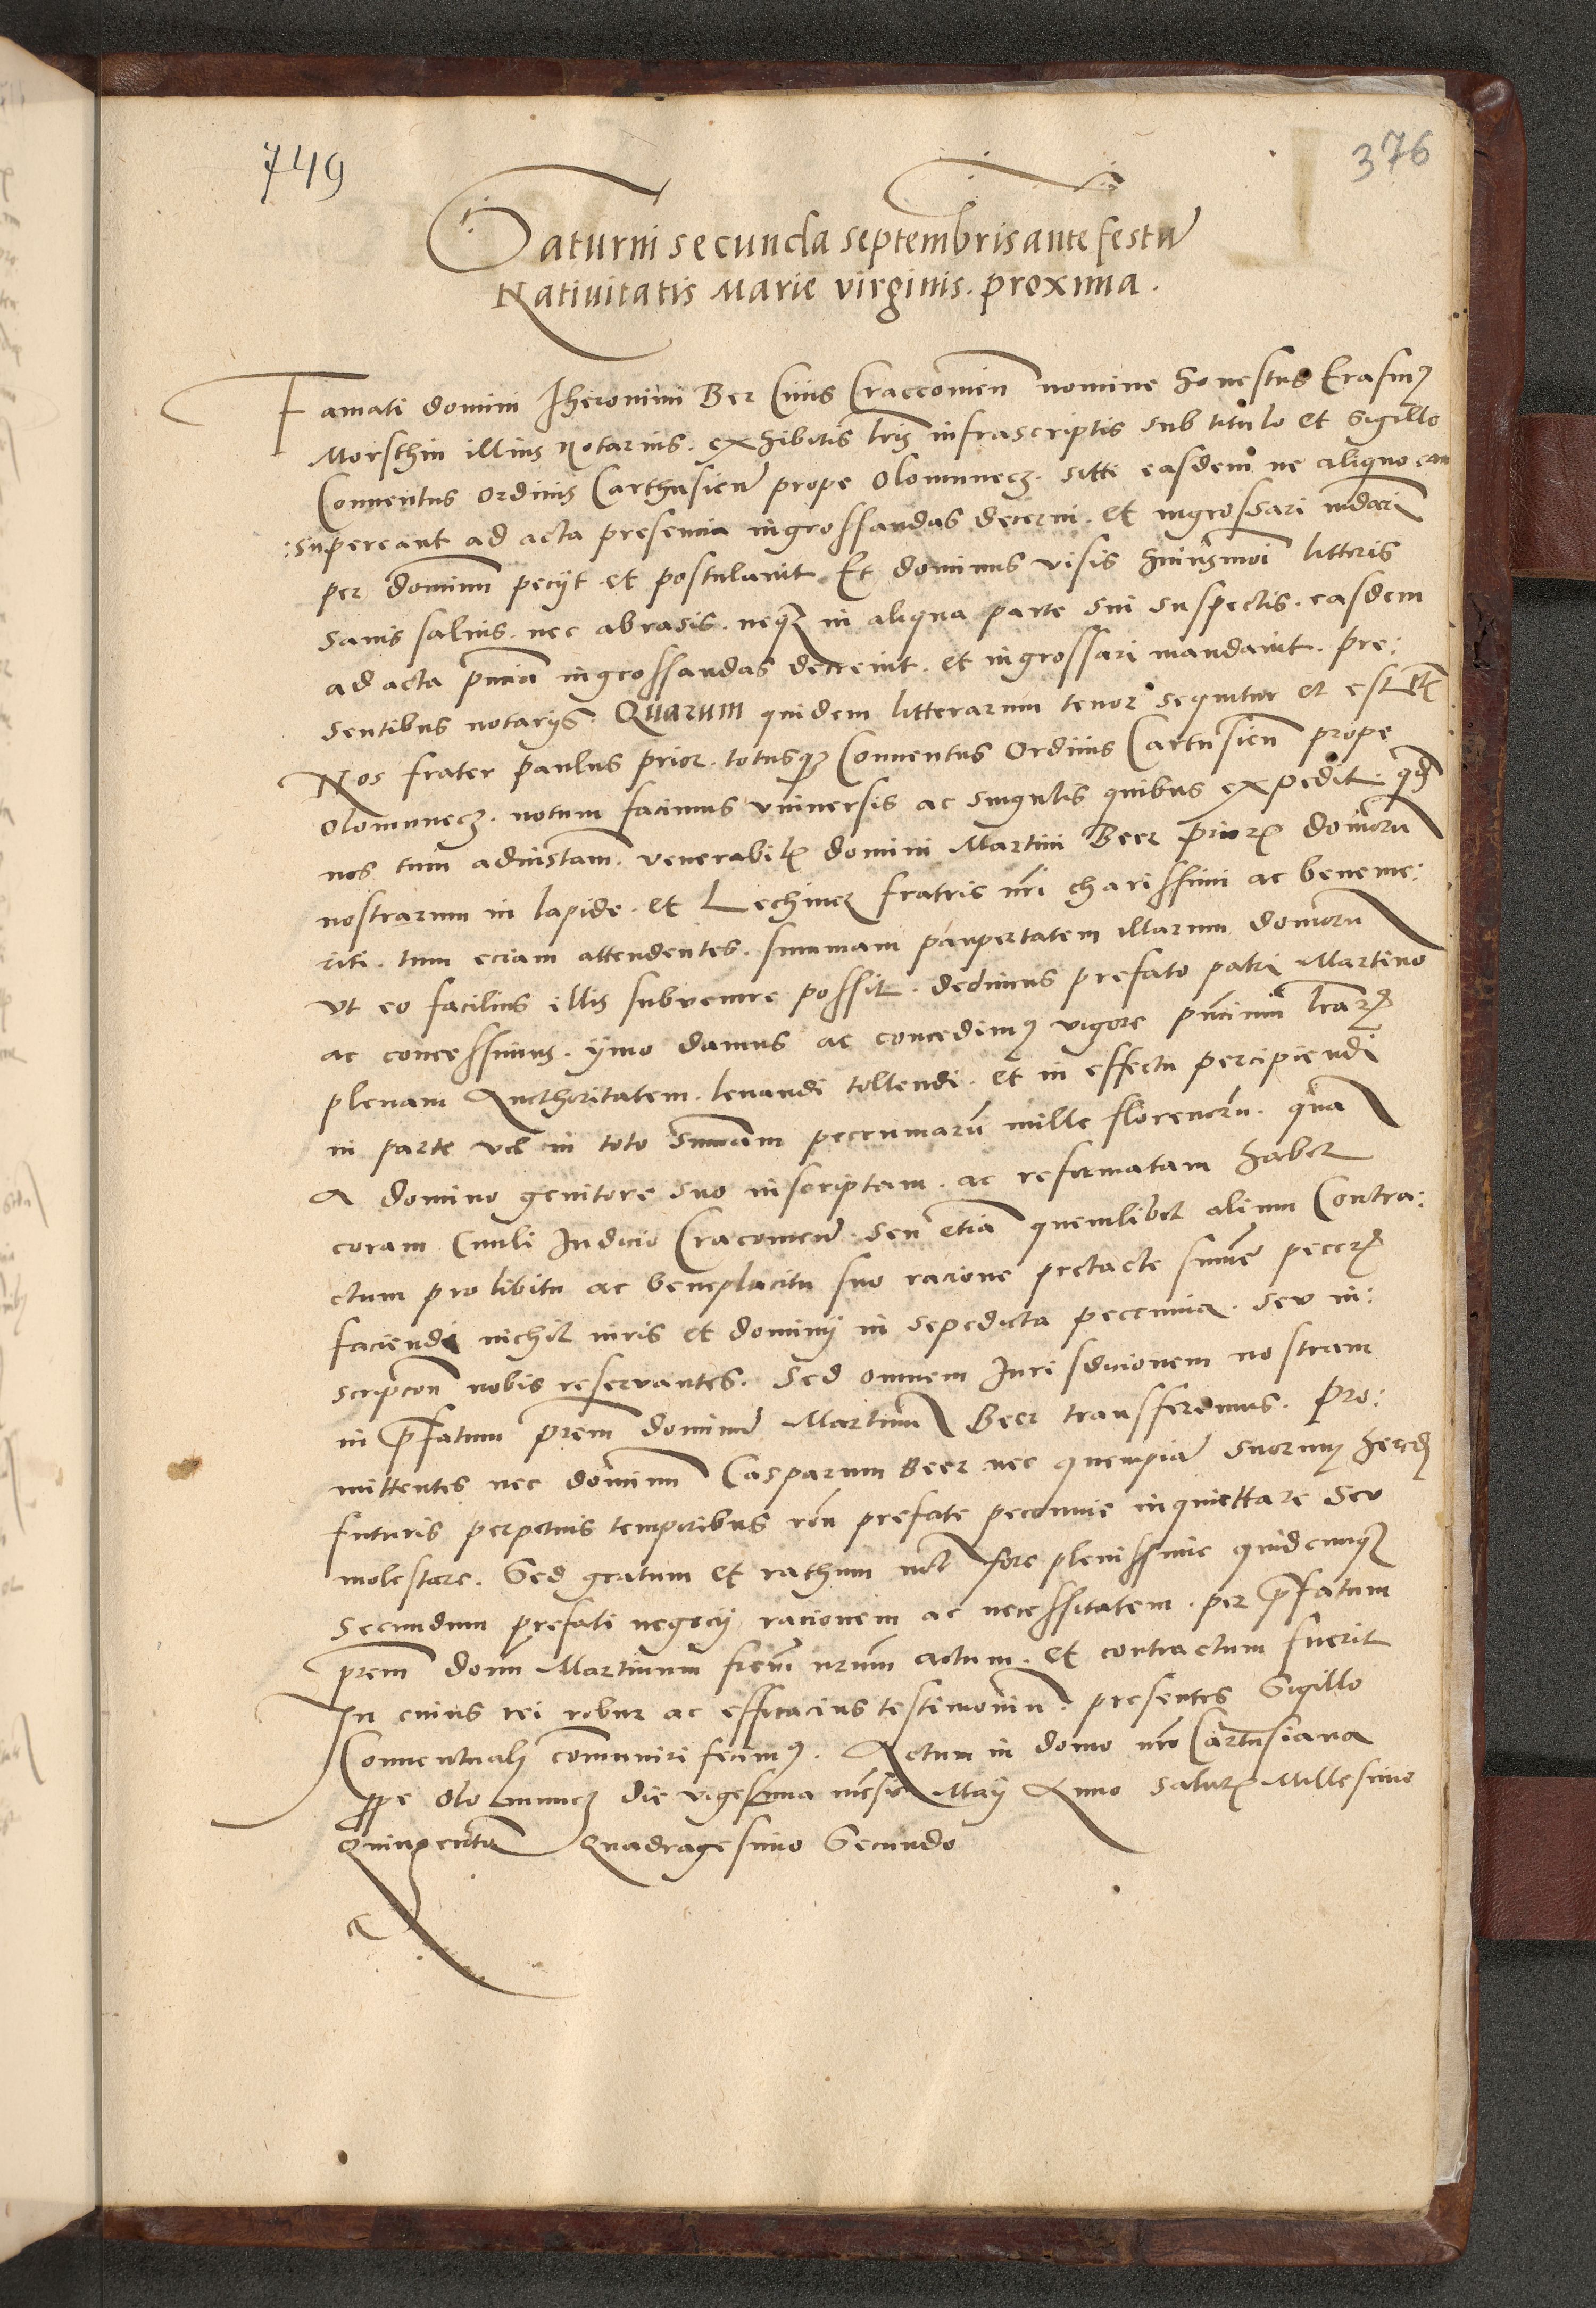 749
376
Saturni secunda septembris ante festum
Nativitatis Marie virginis. proxima.
Famati domini Jheronimi Ber Civis Craccovien nomine Honestus Erasmus
Morsthin illius Notarius. exhibitis lris infrascriptis sub titulo et Sigillo
Conventus Ordinis Carthusien prope Olomunecz. sitti easdem ne aliquo casu
supereant ad acta presencia ingrossandas decerni. et ingrossari mdari
per dominum peciit et postulavit Et dominus visis huiusmoi litteris
sanis salvis. nec abrasis. neque in aliqua parte sui suspectis. easdem
ad acta pncia ingrossandas decrevit. et ingrossari mandavit. pre:
sentibus notariis. Quarum quidem litterarum tenor sequitur et est tlis
Nos frater Paulus prior. totusque Conventus Ordinis Cartusien prope
Olomunecz. notum facimus universis ac singulis quibus expedit. quod
nos tum ad instam. venerabilis domini Martini Beer prioris domoru
nostrarum in lapide. et Lechincz fratris nri charissimi ac beneme:
riti. tum eciam attendentes. summam paupertatem illarum domoru
Ut eo facilius illis subvenire possit. dedimus prefato patri Martino
ac concessimus. ymo damus ac concedimus vigore pncium lrarum
plenam Authoritatem. levandi tollendi. et in effectu percipiendi
in parte vel in toto Summam peccuniarum mille florenoru. quam
A domino genitore suo inscriptam. ac reformatam habet
coram Civili Judicio Cracovien. seu etiam quemlibet alium Contra:
ctum pro libitu ac beneplacitu suo racione pretacte summe peccrum
faciendi nichil iuris et dominii in sepedicta peccunia. seu in:
scripcon nobis reservantes. Sed omnem Jurisdicionem nostram
in prefatum prem dominum Martinum Beer transferimus. Pro:
mittentes nec dominum Casparum Beer nec quempiam suorum hered
futuris perpetuis temporibus ron prefate peccunie inquiettare Seu
molestare. Sed gratum et rathum fore plenissime quidcunque
secundum prefati negocii racionem ac necessitatem. per prefatum
prem donu Martinum frem nrum actum. et contractum fuerit
In cuius rei robur ac efficacius testimonium. presentes Sigillo
Conventuali communiri fecimus. Actum in domo nra Cartusiana
prope Olomuncz die vigesima mensis Maii Anno Salutis Millesimo
Quingento Quadragesimo Secundo